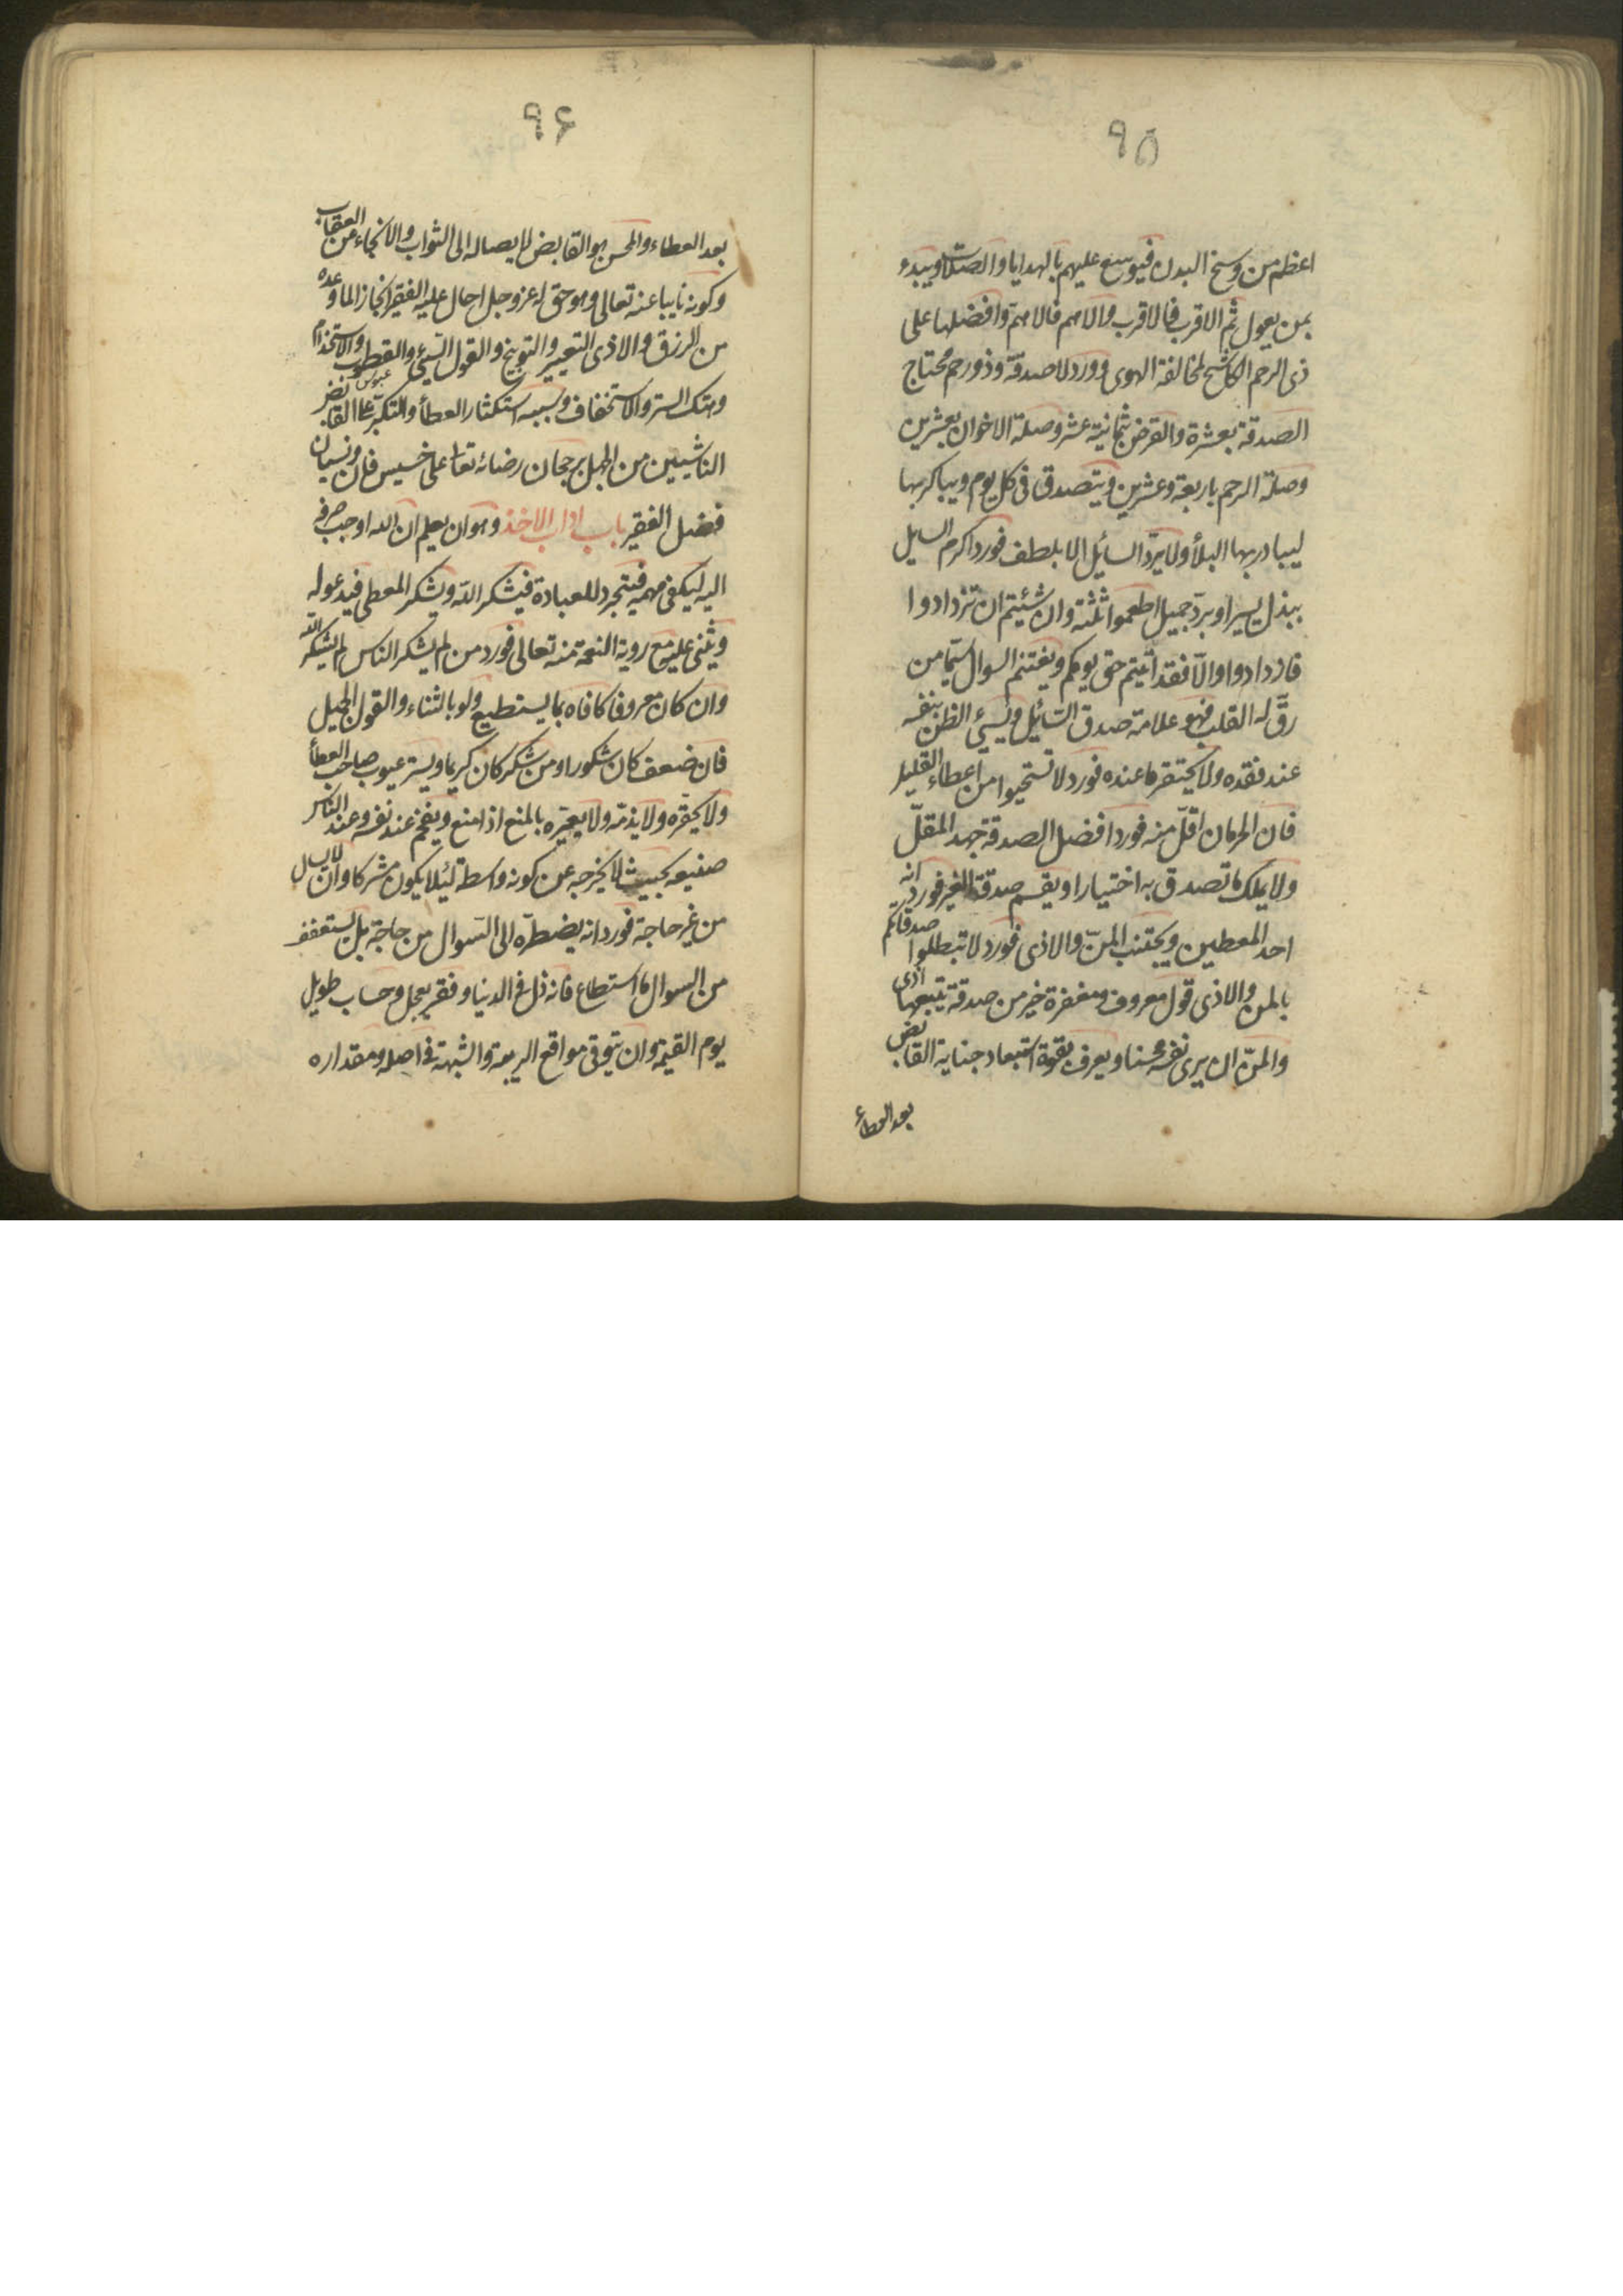 ٩٥
اعظم من وسخ البدن فيوسع عليهم بالهدايا والصلات ويبدء
بمن يعول ثم الاقرب فالاقرب والاهم فالاهم وافضلها على
ذى الرحم الكاشح لمخالفة الهوى وورد لا صدقة وذو رحم محتاج
الصدقة بعشرة والقرض بثمانية عشر وصلة الاخوان بعشرين
وصلة الرحم باربعة وعشرين ويتصدق فى كل يوم ويباكر بها
ليبادر بها البلأ ولا يردّ السائل الا بلطف فورد اكرم السايل
ببذل يسير او بردّ جميل اطعموا ثلثة وان شئتم ان تزدادوا
فازدادوا والّا فقد اديتم حق يومكم ويغتنم السوال سيّما من
رقّ له القلب فهو علامة صدق السّائل ويسيئ الظن بنفسه
عند فقده ولا يحتقر ما عنده فورد لا تستحيوا من اعطاء القليل
فان الحرمان اقلّ منه فورد افضل الصدقة جهد المقلّ
ولا يملك ما تصدق به اختيارا ويقسم صدقة الغير فورد انه
احد المعطين ويجتنب المنّ والاذى فورد لا تبطلوا صدقاتكم
بالمن والاذى قول معروف ومغفرة خير من صدقة يتبعها اذى
والمنّ ان يرى نفسه محسنا ويعرف بقوة استبعاد جناية القابض
بعد العطاء
٩۶
بعد العطاء والمحسن هو القابض لايصاله الى الثواب والانجاء من العقاب
وكونه نايبا عنه تعالى وهو حق له عز وجل احال عليه الفقير انجازا لما وعده
من الرزق والاذى التعيير والتوبيخ والقول السيئ والقطوب والاستخدام
عبوس
وهتك الستر والاستخفاف وسببه استكثار العطأ والتكبّر على القابض
الناشيين من الجهل برجحان رضائه تعالى على خسيس فان ونسيان
فضل الفقير باب اداب الاخذ وهو ان يعلم ان الله اوجب صرفه
اليه ليكفى مهمه فيتجرد للعبادة فيشكر الله ويشكر المعطى فيدعو له
ويثنى عليه مع روية النعمة منه تعالى فورد من لم يشكر الناس لم يشكر الله
وان كان معروفا كافاه بما يستطيع ولو بالثناء والقول الجميل
فان ضعف كان شكورا ومن شكر كان كريما ويستر عيوب صاحب العطأ
ولا يحقّره ولا يذمّه ولا يعيّره بالمنع اذا منع ويفخم عند نفسه وعند الناس
صنيعه بحيث لا يخرجه عن كونه واسطة لئلا يكون مشركا وان لا يسال
من غير حاجة فورد انه يضطرّه الى السّوال من حاجة بل يستعفف
من السوال ما استطاع فانه ذل فى الدنيا وفقر يعجل وحساب طويل
يوم القيمة وان يتوقى مواقع الريبة والشبهة فى اصله ومقداره